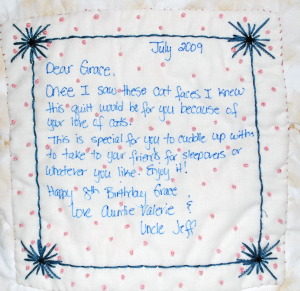 July 2009
Dear Grace,
Once I saw these cat faces I knew
this quilt would be for you because of
your love of cats.
This is special for you to cuddle up with,
to take to your friends for sleepovers or
whatever you like. Enjoy it!
Happy 8th Birthday Grace
Love Auntie Valerie &
Uncle Jeff